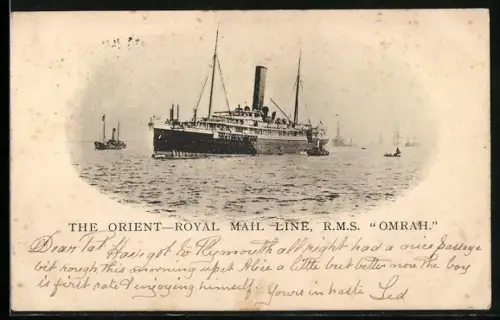 THE ORIENT—ROYAL MAIL LINE, R.M.S. "OMRAH."
Dear Tat Have got to Plymouth allright had a nice passage
bit rough this morning upset Alice a little but better now The boy
is first rate & enjoying himself. Yours in haste Led